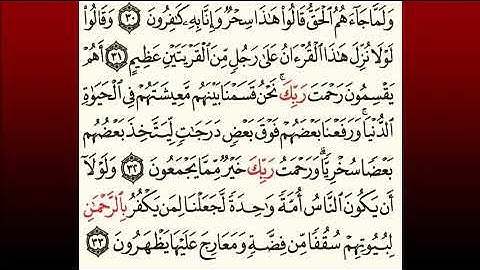 وَلَمَّا جَاءَهُمُ ٱلْحَقُّ قَالُوا۟ هَـٰذَا سِحْرٌ وَإِنَّا بِهِۦ كَـٰفِرُونَ ٣٠ وَقَالُوا۟
لَوْلَا نُزِّلَ هَـٰذَا ٱلْقُرْءَانُ عَلَىٰ رَجُلٍ مِّنَ ٱلْقَرْيَتَيْنِ عَظِيمٍ ٣١ أَهُمْ
يَقْسِمُونَ رَحْمَتَ رَبِّكَ ۚ نَحْنُ قَسَمْنَا بَيْنَهُم مَّعِيشَتَهُمْ فِى ٱلْحَيَوٰةِ
ٱلدُّنْيَا ۚ وَرَفَعْنَا بَعْضَهُمْ فَوْقَ بَعْضٍ دَرَجَـٰتٍ لِّيَتَّخِذَ بَعْضُهُم
بَعْضًا سُخْرِيًّا ۗ وَرَحْمَتُ رَبِّكَ خَيْرٌ مِّمَّا يَجْمَعُونَ ٣٢ وَلَوْلَآ
أَن يَكُونَ ٱلنَّاسُ أُمَّةً وَٰحِدَةً لَّجَعَلْنَا لِمَن يَكْفُرُ بِٱلرَّحْمَـٰنِ
لِبُيُوتِهِمْ سُقُفًا مِّن فِضَّةٍ وَمَعَارِجَ عَلَيْهَا يَظْهَرُونَ ٣٣